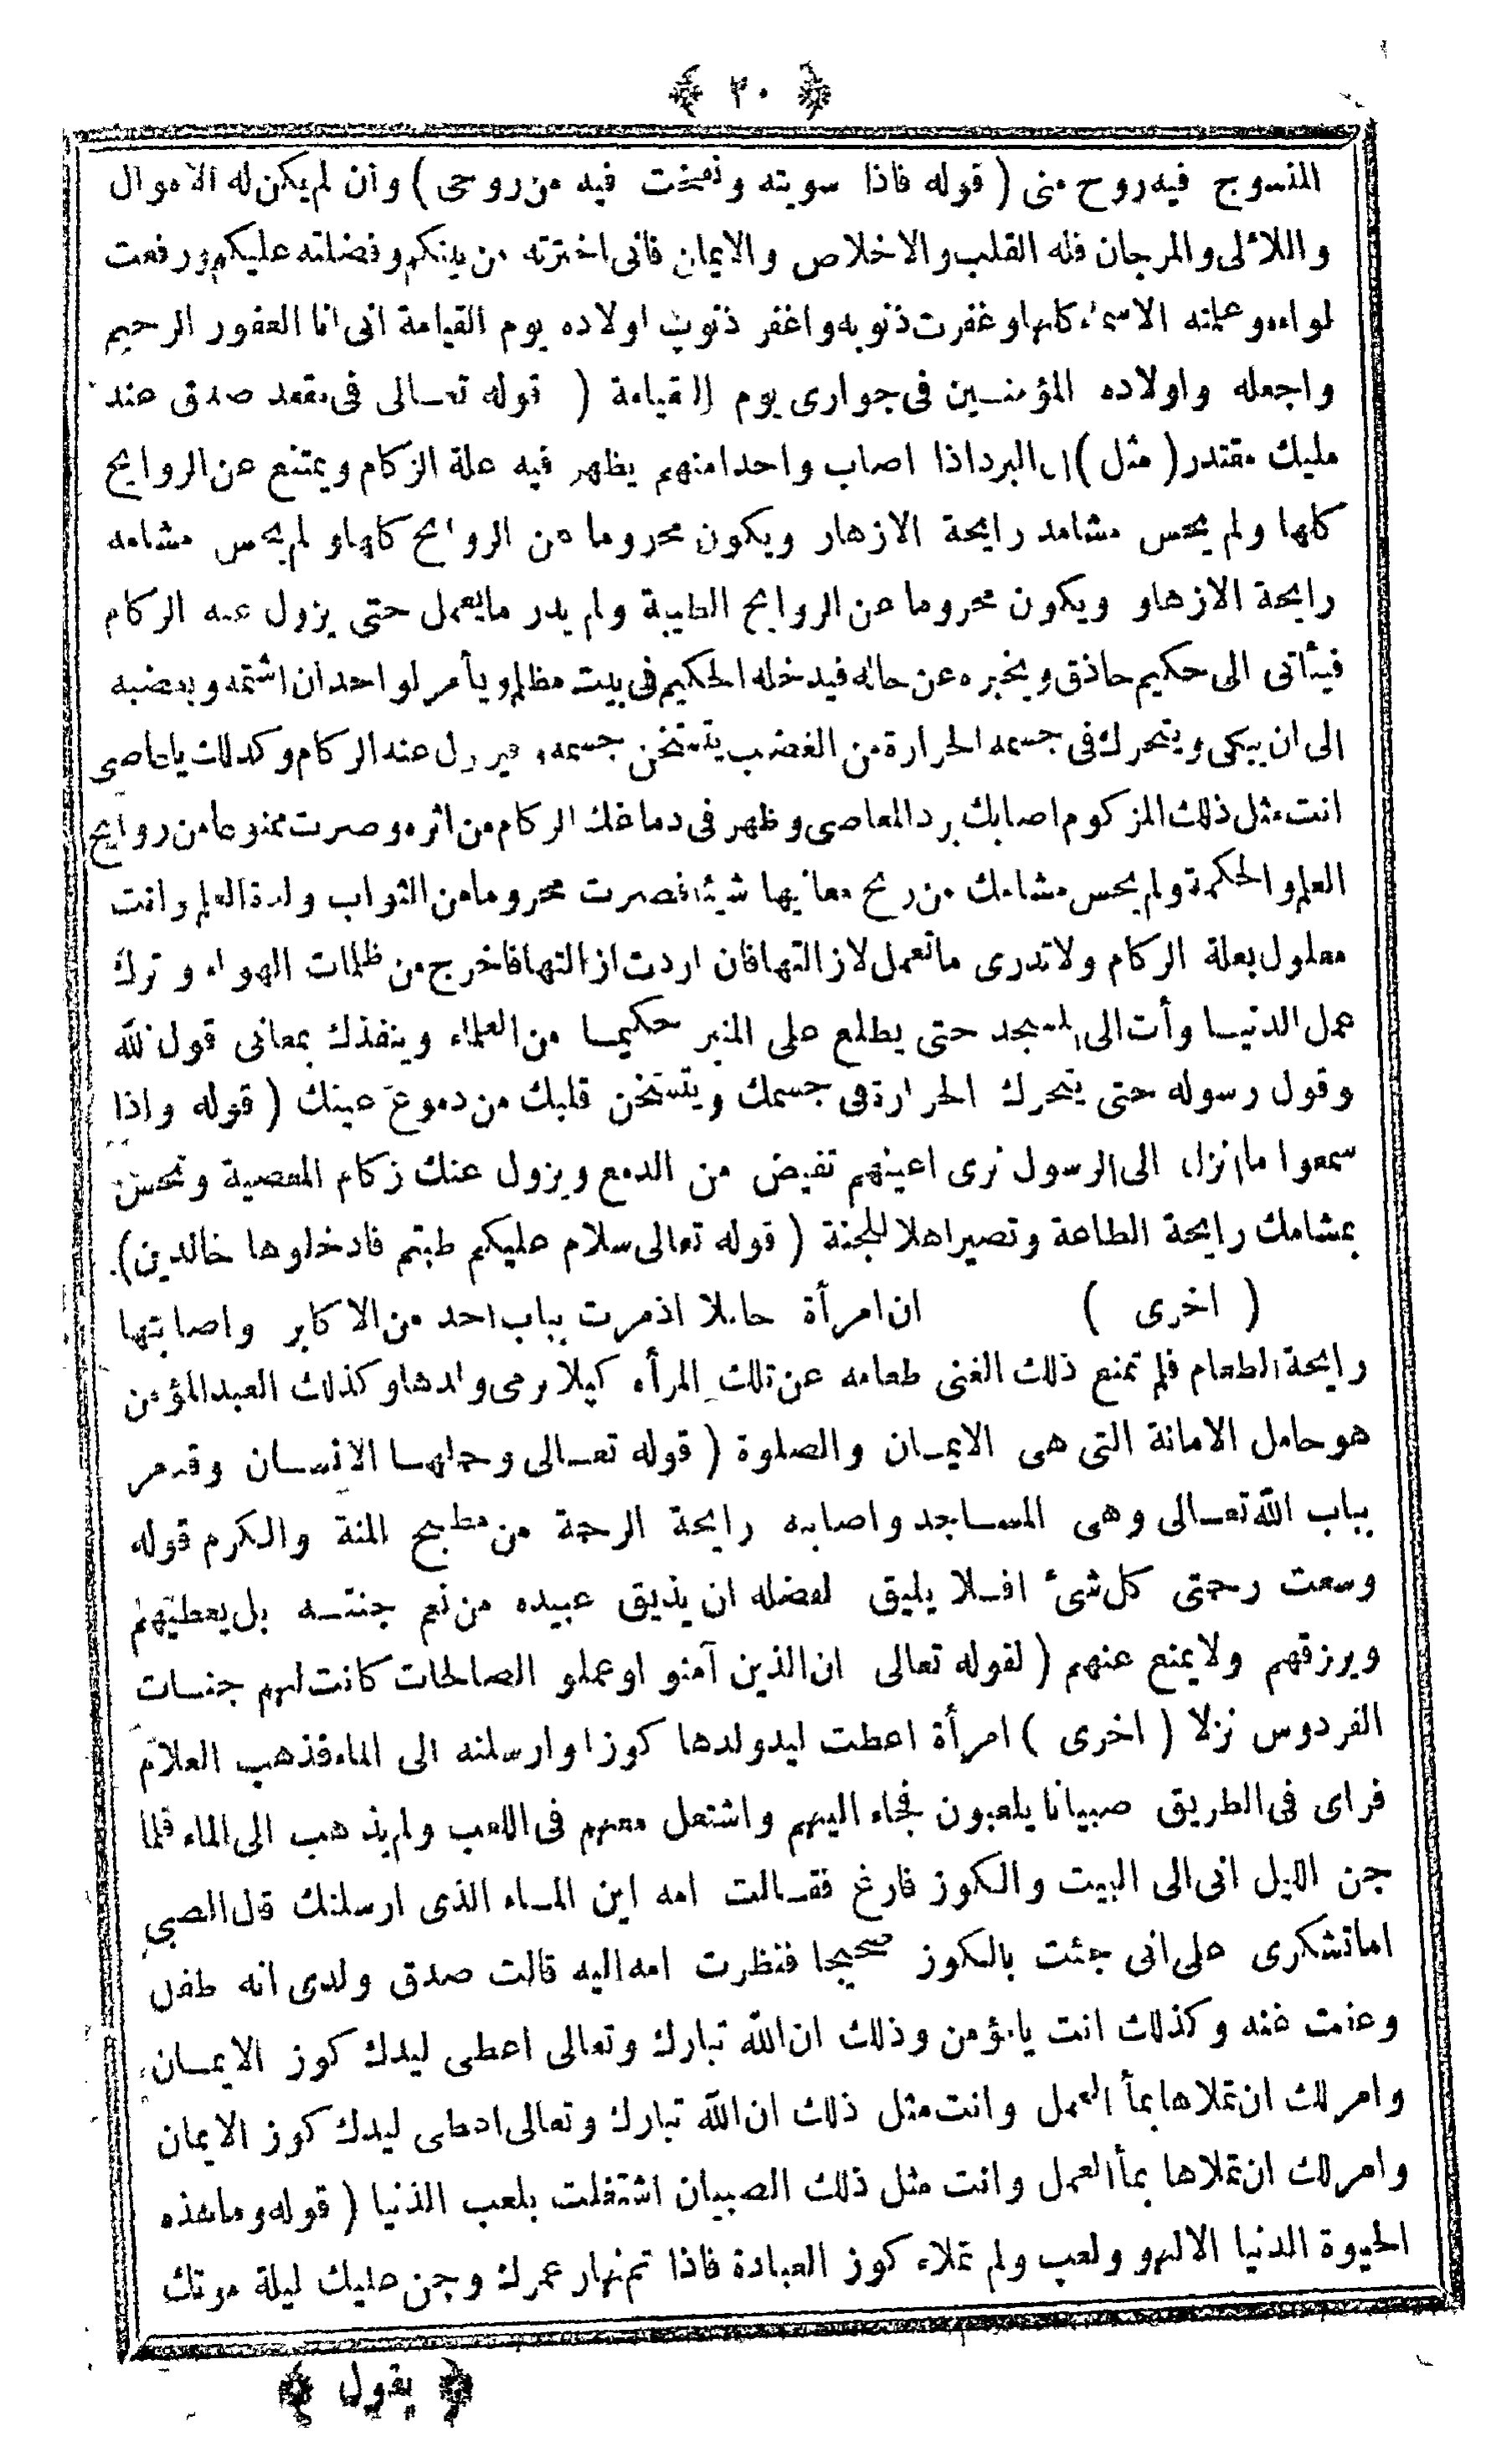 ﴿ ٢٠ ﴾
المنسوج فيه روح منى ( قوله فاذا سويته ونفخت فيه من روحى ) وان لم يكن له الاموال
واللآلئ والمرجان فله القلب والاخلاص والايمان فانى اخترته من بينكم وفضلته عليكم ورفعت
لواءه وعلمته الاسماء كلها وغفرت ذنوبه واغفر ذنوب اولاده يوم القيامة انى انا الغفور الرحيم
واجعله واولاده المؤمنين فى جوارى يوم القيامة ( قوله تعالى فى مقعد صدق عند
مليك مقتدر ( مثل ) ان البرد اذا اصاب واحدا منهم يظهر فيه علة الزكام ويمتنع عن الروايح
كلها ولم يحس مشامه رايحة الازهار ويكون محروما من الروايح كلها ولم يحس مشامه
رايحة الازهاو ويكون محروما عن الروايح الطيبة ولم يدر ما يعمل حتى يزول عنه الركام
فيأتى الى حكيم حاذق ويخبره عن حاله فيدخله الحكيم فى بيت مظلم ويأمر لواحد ان اشتمه وبعضبه
الى ان يبكى ويتحرك فى جسمه الحرارة من الغضب يتسخن جسمه فيزول عنه الركام وكذلك ياعاصى
انت مثل ذلك المزكوم اصابك برد المعاصى وظهر فى دماغك الركام من اثره وصرت ممنوعا من روايح
العلم والحكمة ولم يحس مشامك من ريح معانيها شيئا فصرت محروما من الثواب ولذة العلم وانت
معلول بعلة الركام ولا تدرى ما تعمل لازالتها فان اردت ازالتها فاخرج من ظلمات الهواء و ترك
عمل الدنيا وأت الى المسجد حتى يطلع على المنبر حكيما من العلماء وينفذك بمعانى قول الله
وقول رسوله حتى يتحرك الحرارة فى جسمك ويتسخن قلبك من دموع عينك ( قوله واذا
سمعوا ما انزل الى الرسول ترى اعينهم تفيض من الدمع ويزول عنك زكام المعصية وتحس
بمشامك رايحة الطاعة وتصير اهلا للجنة ( قوله تعالى سلام عليكم طبتم فادخلوها خالدين )
( اخرى ) ان امرأة حاملا اذمرت بباب احد من الاكابر واصابتها
رايحة الطعام فلم تمنع ذلك الغنى طعامه عن تلك المرأه كيلا ترمى ولدها وكذلك العبد المؤمن
هو حامل الامانة التى هى الايمان والصلوة ( قوله تعالى وحملها الانسان وقد مر
بباب الله تعالى وهى المساجد واصابه رايحة الرحمة من مطبخ المنة والكرم قوله
وسعت رحمتى كل شئ افلا يليق لفضله ان يذيق عبيده من نعم جنته بل يعطيهم
ويرزقهم ولا يمنع عنهم ( لقوله تعالى ان الذين آمنو اوعملو الصالحات كانت لهم جنات
الفردوس نزلا ( اخرى ) امرأة اعطت ليد ولدها كوزا وارسلته الى الماء فذهب العلام
فراى فى الطريق صبيانا يلعبون فجاء اليهم واشتعل معهم فى اللعب ولم يذهب الى الماء فلما
جن الليل اتى الى البيت والكوز فارغ فقالت امه اين الماء الذى ارسلتك قال الصبى
اما تشكرى على انى جئت بالكوز صحيحا فنظرت امه اليه قالت صدق ولدى انه طفل
وعفت عنه وكذلك انت يا مؤمن وذلك ان الله تبارك وتعالى اعطى ليدك كوز الايمان
وامر لك ان تملاها بمأ العمل وانت مثل ذلك ان الله تبارك وتعالى اعطى ليدك كوز الايمان
وامر لك ان تملاها بمأ العمل وانت مثل ذلك الصبيان اشتغلت بلعب الدنيا ( قوله وما هذه
الحيوة الدنيا الا لهو ولعب ولم تملاء كوز العبادة فاذا تم نهار عمرك وجن عليك ليلة موتك
﴿ يقول ﴾